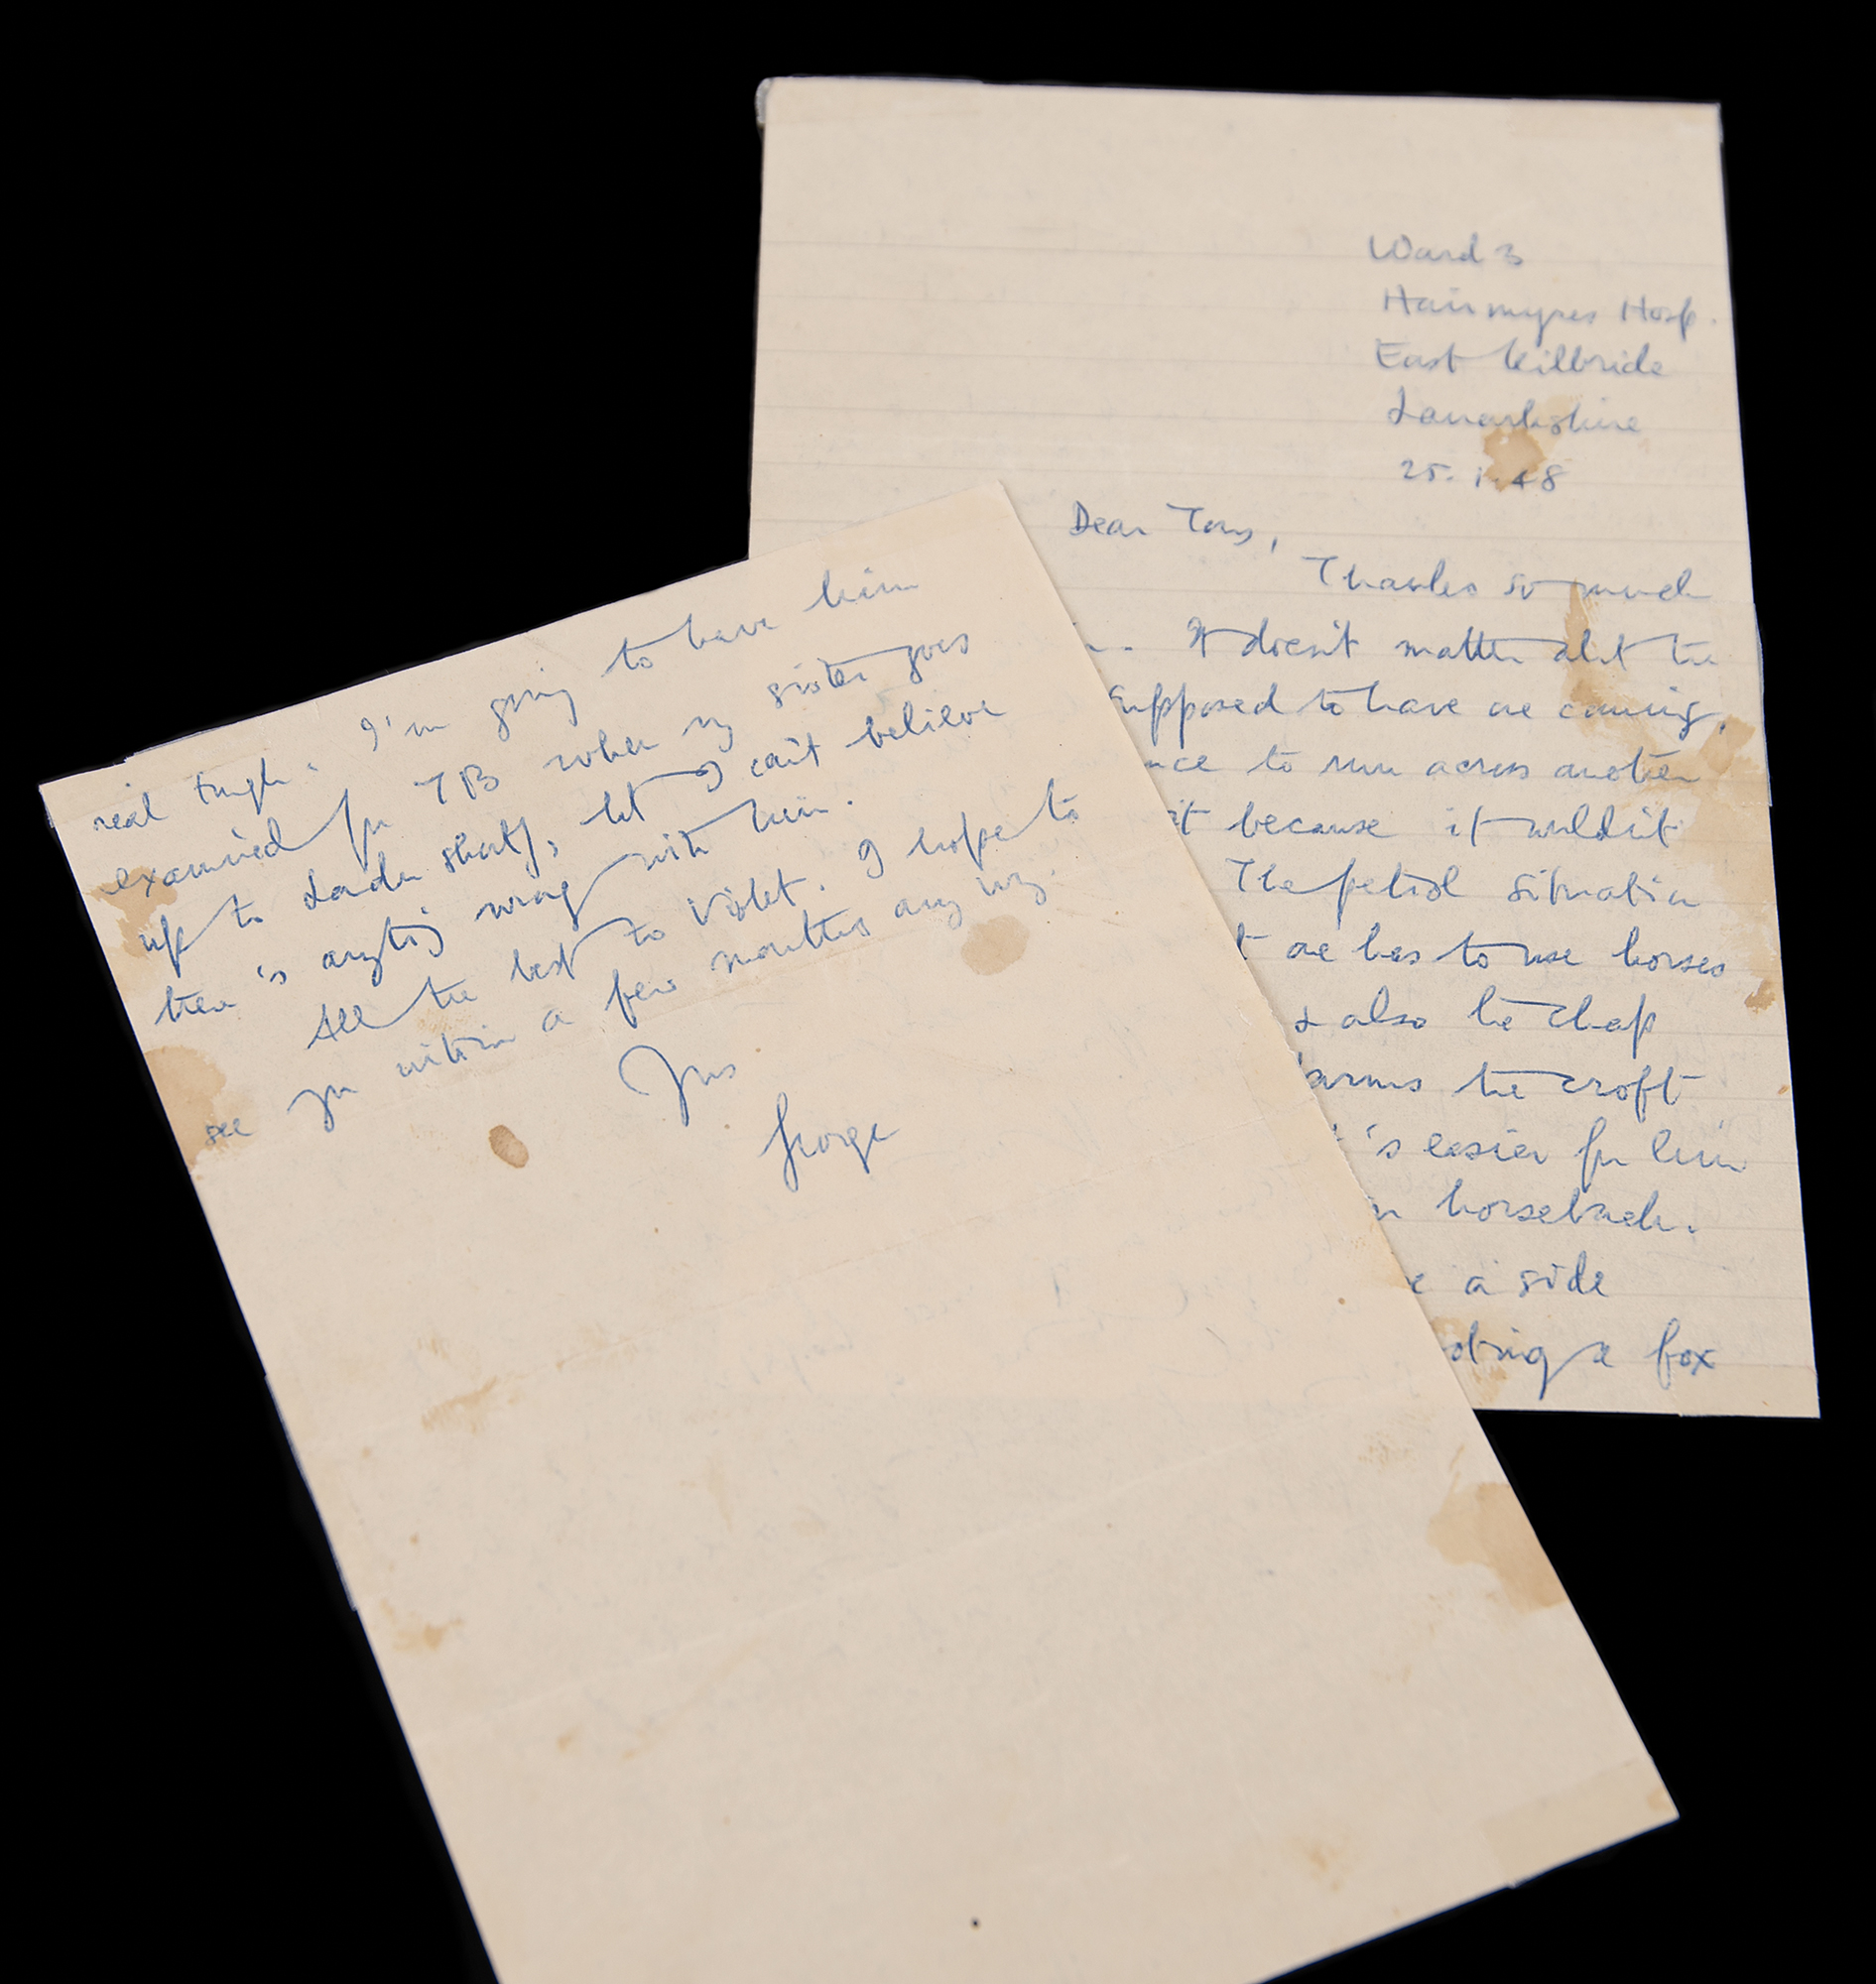 Ward 3
Hairmyres Hosp.
East Kilbride
Lanarkshire
25. 1. 48
Dear Tony,
Thanks so much
It doesn't matter abt the
supposed to have one coming,
to run across another
it because it wouldn't
The petrol situation
one has to use horses
& also the chap
farms the croft
's easier for him
on horseback.
a side
a fox
real tough. I'm going to have him
examined for TB when my sister goes
up to London shortly, but I can't believe
there's anything wrong with him.
All the best to Violet. I hope to
see you within a few months anyway.
Yrs
George